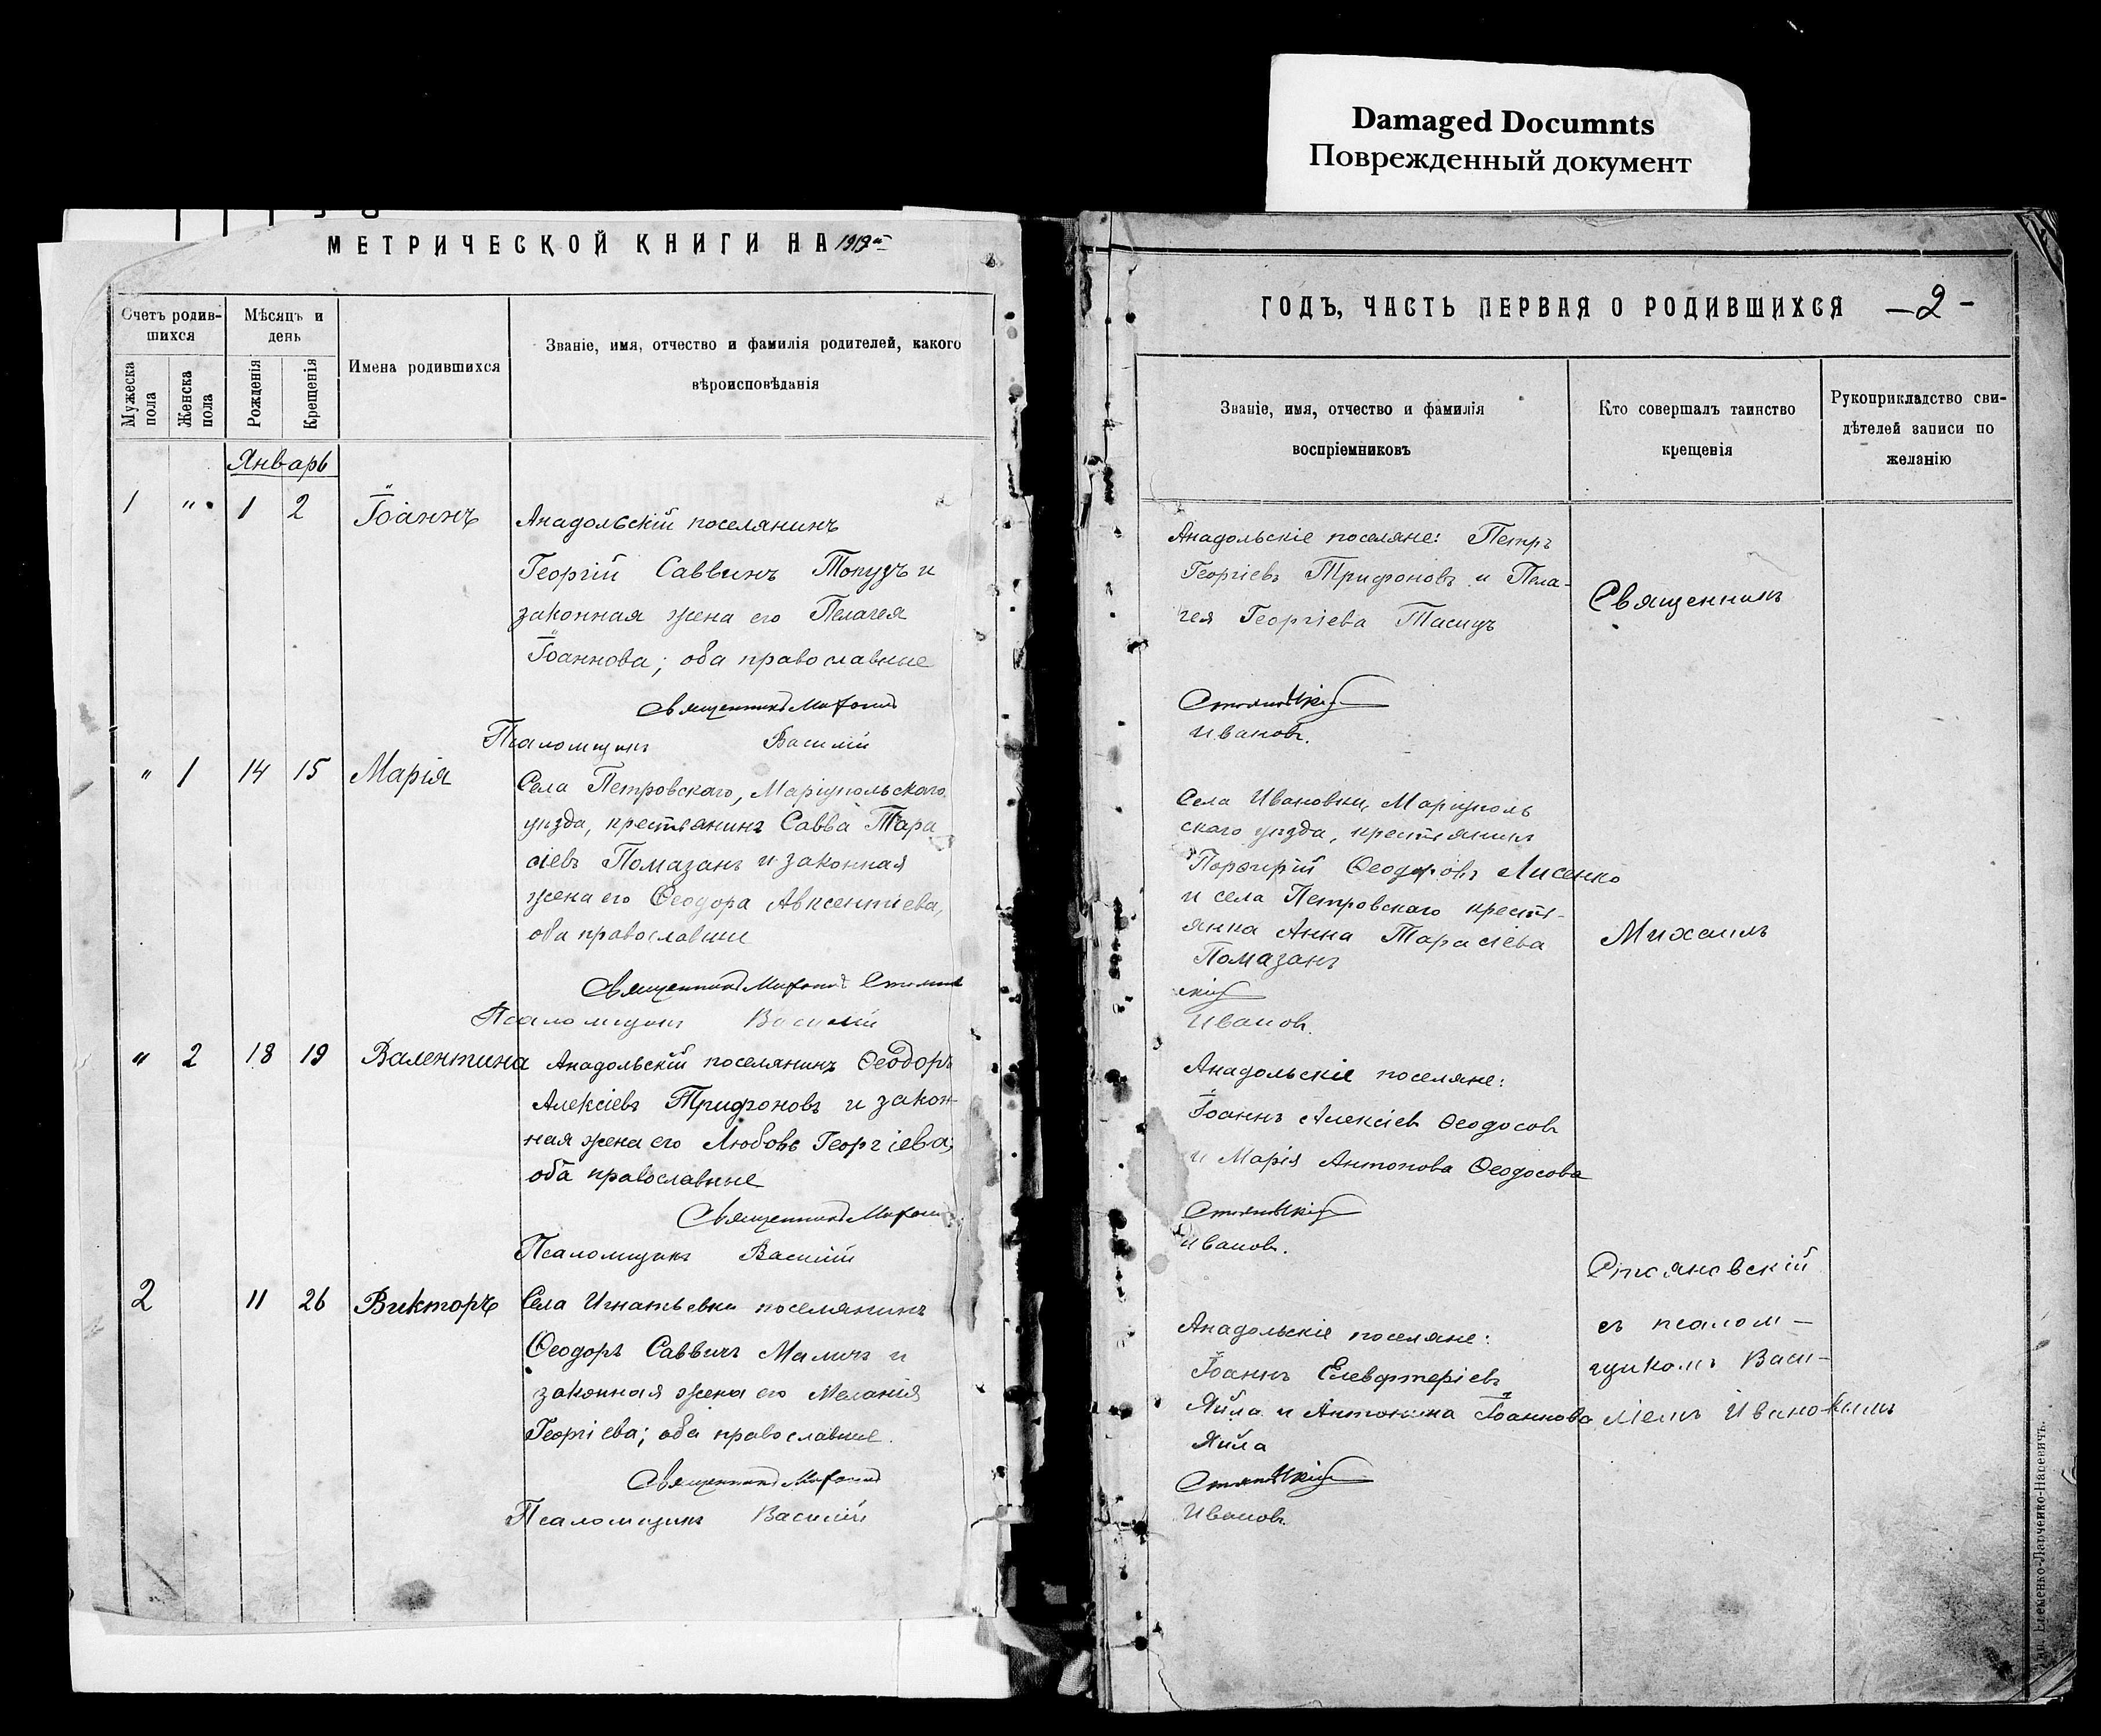 Damaged Documnts
Поврежденный документ
МЕТРИЧЕСКОЙ КНИГИ НА 1919й
Счетъ родив-
шихся
Мѣсяцъ и
день
Имена родившихся
Званіе, имя, отчество и фамилія родителей, какого
вѣроисповѣданія
Мужеска
пола
Женска
пола
Рожденія
Крещенія
Январь
1 " 1 2 Іоаннъ Анадольскій поселянинъ
Георгій Саввинъ Токузъ и
законная жена его Пелагея
Іоаннова; оба православные
Священникъ Михаилъ
Псаломщикъ Василій
" 1 14 15 Марія Села Петровскаго, Маріупольскаго
уѣзда, крестьянинъ Савва Тара
сіевъ Помазанъ и законная
жена его Ѳеодора Авксентіева,
оба православные
Священникъ Михаилъ Стоянов
Псаломщикъ Василій
" 2 18 19 Валентина Анадольскій поселянинъ Ѳеодоръ
Алексіевъ Трифоновъ и закон-
ная жена его Любовь Георгіева;
оба православные
Священникъ Михаил
Псаломщикъ Василій
2 11 26 Викторъ Села Игнатьевки поселянинъ
Ѳеодоръ Саввичъ Маличъ и
законная жена его Меланія
Георгіева; оба православные.
Священникъ Михаилъ
Псаломщикъ Василій
ГОДЪ, ЧАСТЬ ПЕРВАЯ О РОДИВШИХСЯ — 2 —
Званіе, имя, отчество и фамилія
воспріемниковъ
Кто совершалъ таинство
крещенія
Рукоприкладство сви-
дѣтелей записи по
желанію
Анадольскіе поселяне: Петръ
Георгіевъ Трифоновъ и Пела-
гея Георгіева Тасицъ
Стояновскій
Ивановъ.
Села Ивановки, Маріуполь
скаго уѣзда, крестьянинъ
Порфирій Ѳеодоровъ Лисенко
и села Петровскаго крестъ-
янка Анна Тарасіева
Помазанъ
скій
Ивановъ.
Анадольскіе поселяне:
Іоаннъ Алексіев Ѳеодосов
и Марія Антонова Ѳеодосова
Стояновскій
Ивановъ.
Анадольскіе поселяне:
Іоаннъ Елевферіевъ
Яйла и Антонина Іоаннова
Яйла
Стояновскій
Ивановъ.
Священникъ
Михаилъ
Стояновскій
съ псалом—
щикомъ Васи—
ліемъ Ивановымъ
Елеменко-Ларченко-Насевичъ.